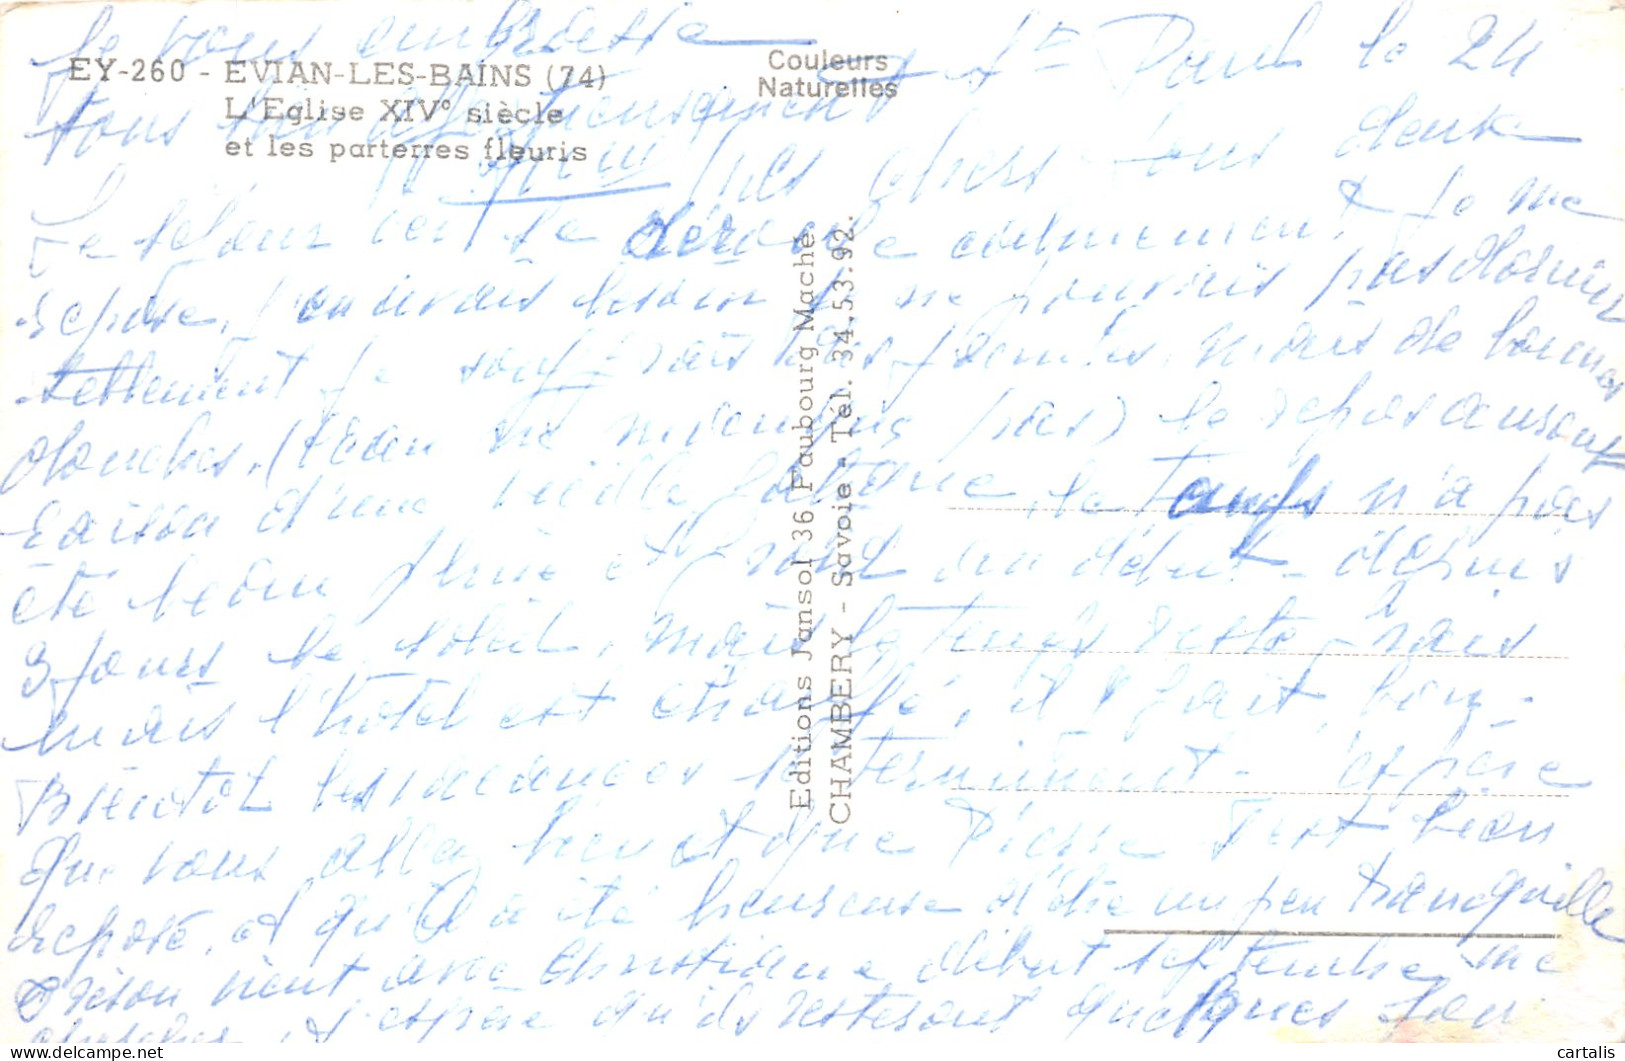 je vous embrasse
tous bien affectueusement
EY-260 - EVIAN-LES-BAINS (74)
L'Eglise XIV° siècle
et les parterres fleuris
Couleurs
Naturelles
Editions Jansol 36 Faubourg Maché.
CHAMBERY - Savoie - Tél. 34.53.92.
Paul le 24
mes chers tous deux
Le séjour ici se déroule calmement je me
repose, j'en avais besoin je ne pouvais pas dormir
tellement je souffrais mais de bonnes
douches, (l'eau ne manque pas) le repos auront
raison d'une vieille fatigue, le temps n'a pas
été beau pluie et froid au début - depuis
3 jours le soleil, mais le temps reste frais
mais l'hôtel est chauffé, il y fait bon -
Bientôt les vacances se terminent - espère
que vous allez bien et que Pierre s'est bien
reposé, et qu'il a été heureuse d'être un peu tranquille
vient avec Christiane début septembre me
chercher, et j'espère qu'ils resteront quelques jours
cartalis